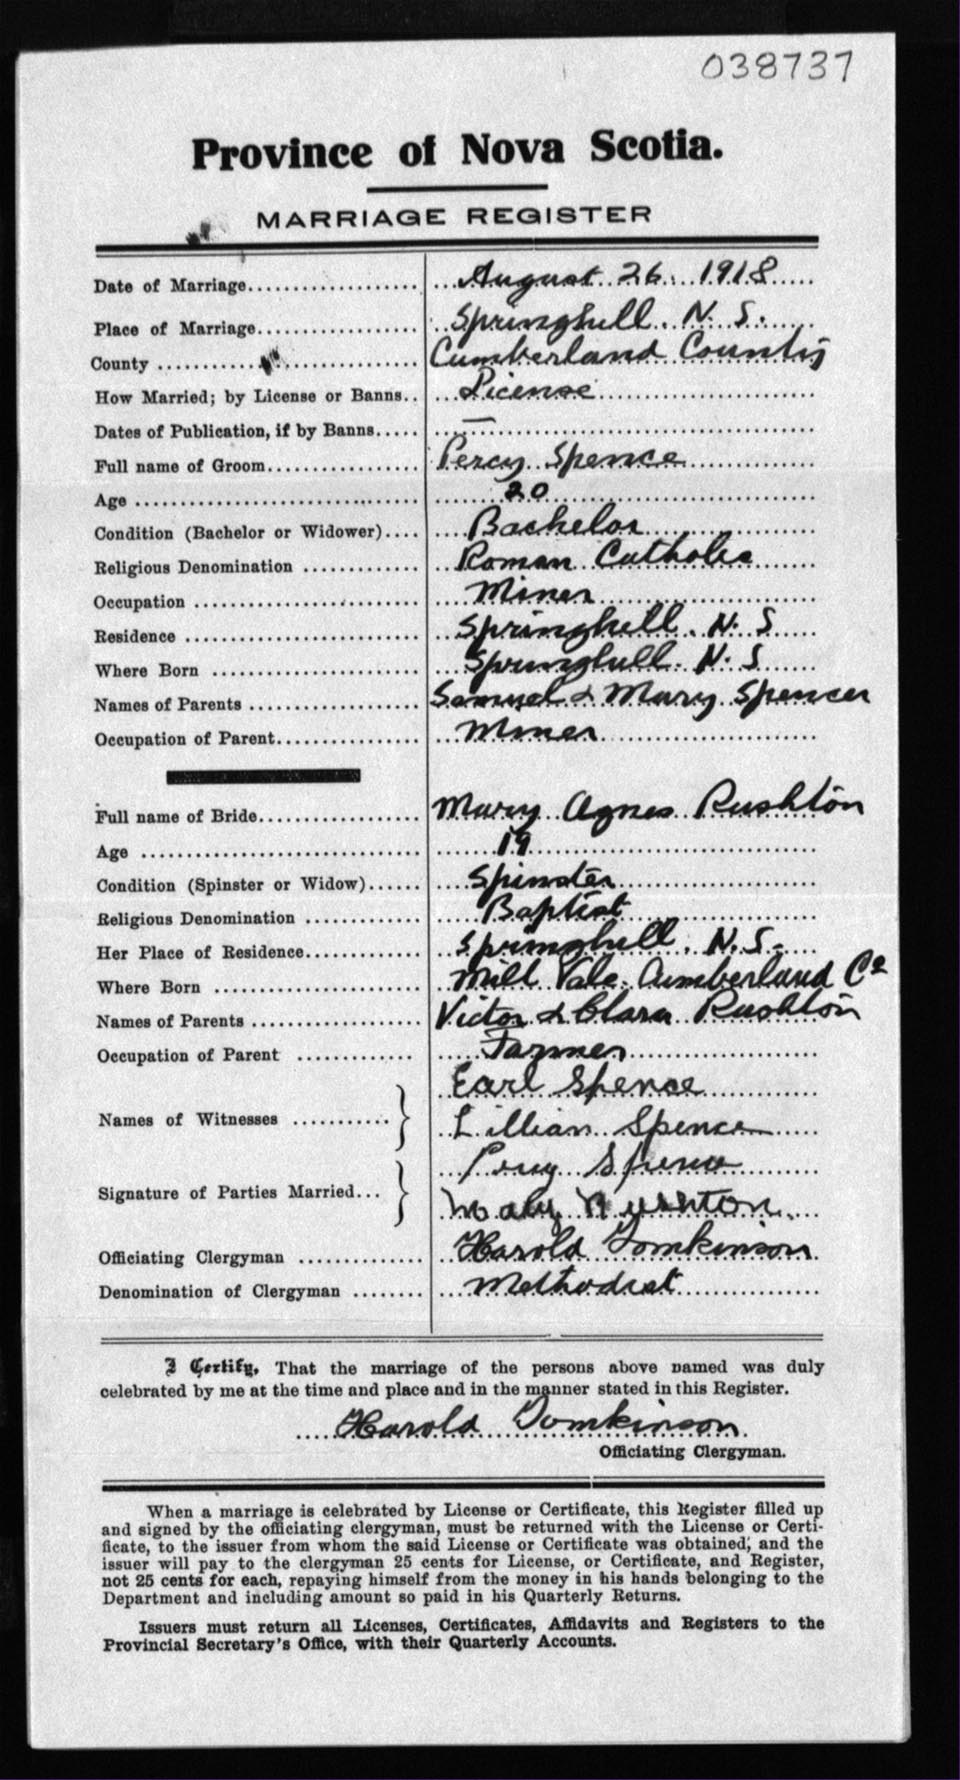 038737
Province of Nova Scotia.
MARRIAGE REGISTER
Date of Marriage.................... August 26. 1918
Place of Marriage.................. Springhill. N. S.
County ........................... Cumberland County
How Married; by License or Banns.. License
Dates of Publication, if by Banns..... —
Full name of Groom................. Percy Spence
Age ................................ 20
Condition (Bachelor or Widower).... Bachelor
Religious Denomination ............. Roman Catholic
Occupation ......................... Miner
Residence .......................... Springhill. N. S
Where Born ........................ Springhill. N. S
Names of Parents ................... Samuel & Mary Spencer
Occupation of Parent................ Miner
Full name of Bride.................. Mary Agnes Rushton
Age ................................ 19
Condition (Spinster or Widow)...... Spinster
Religious Denomination ............. Baptist
Her Place of Residence............. Springhill. N. S.
Where Born ........................ Mill Vale. Cumberland Co
Names of Parents ................... Victor & Clara Rushton
Occupation of Parent ............. Farmer
Earl Spence
Names of Witnesses ...........
Lillian Spence
Percy Spence
Signature of Parties Married...
Mary Rushton
Officiating Clergyman .............. Harold Tomkinson
Denomination of Clergyman ........ Methodist
I Certify, That the marriage of the persons above named was duly
celebrated by me at the time and place and in the manner stated in this Register.
Harold Tomkinson
Officiating Clergyman.
When a marriage is celebrated by License or Certificate, this Register filled up
and signed by the officiating clergyman, must be returned with the License or Certi-
ficate, to the issuer from whom the said License or Certificate was obtained; and the
issuer will pay to the clergyman 25 cents for License, or Certificate, and Register,
not 25 cents for each, repaying himself from the money in his hands belonging to the
Department and including amount so paid in his Quarterly Returns.
Issuers must return all Licenses, Certificates, Affidavits and Registers to the
Provincial Secretary's Office, with their Quarterly Accounts.